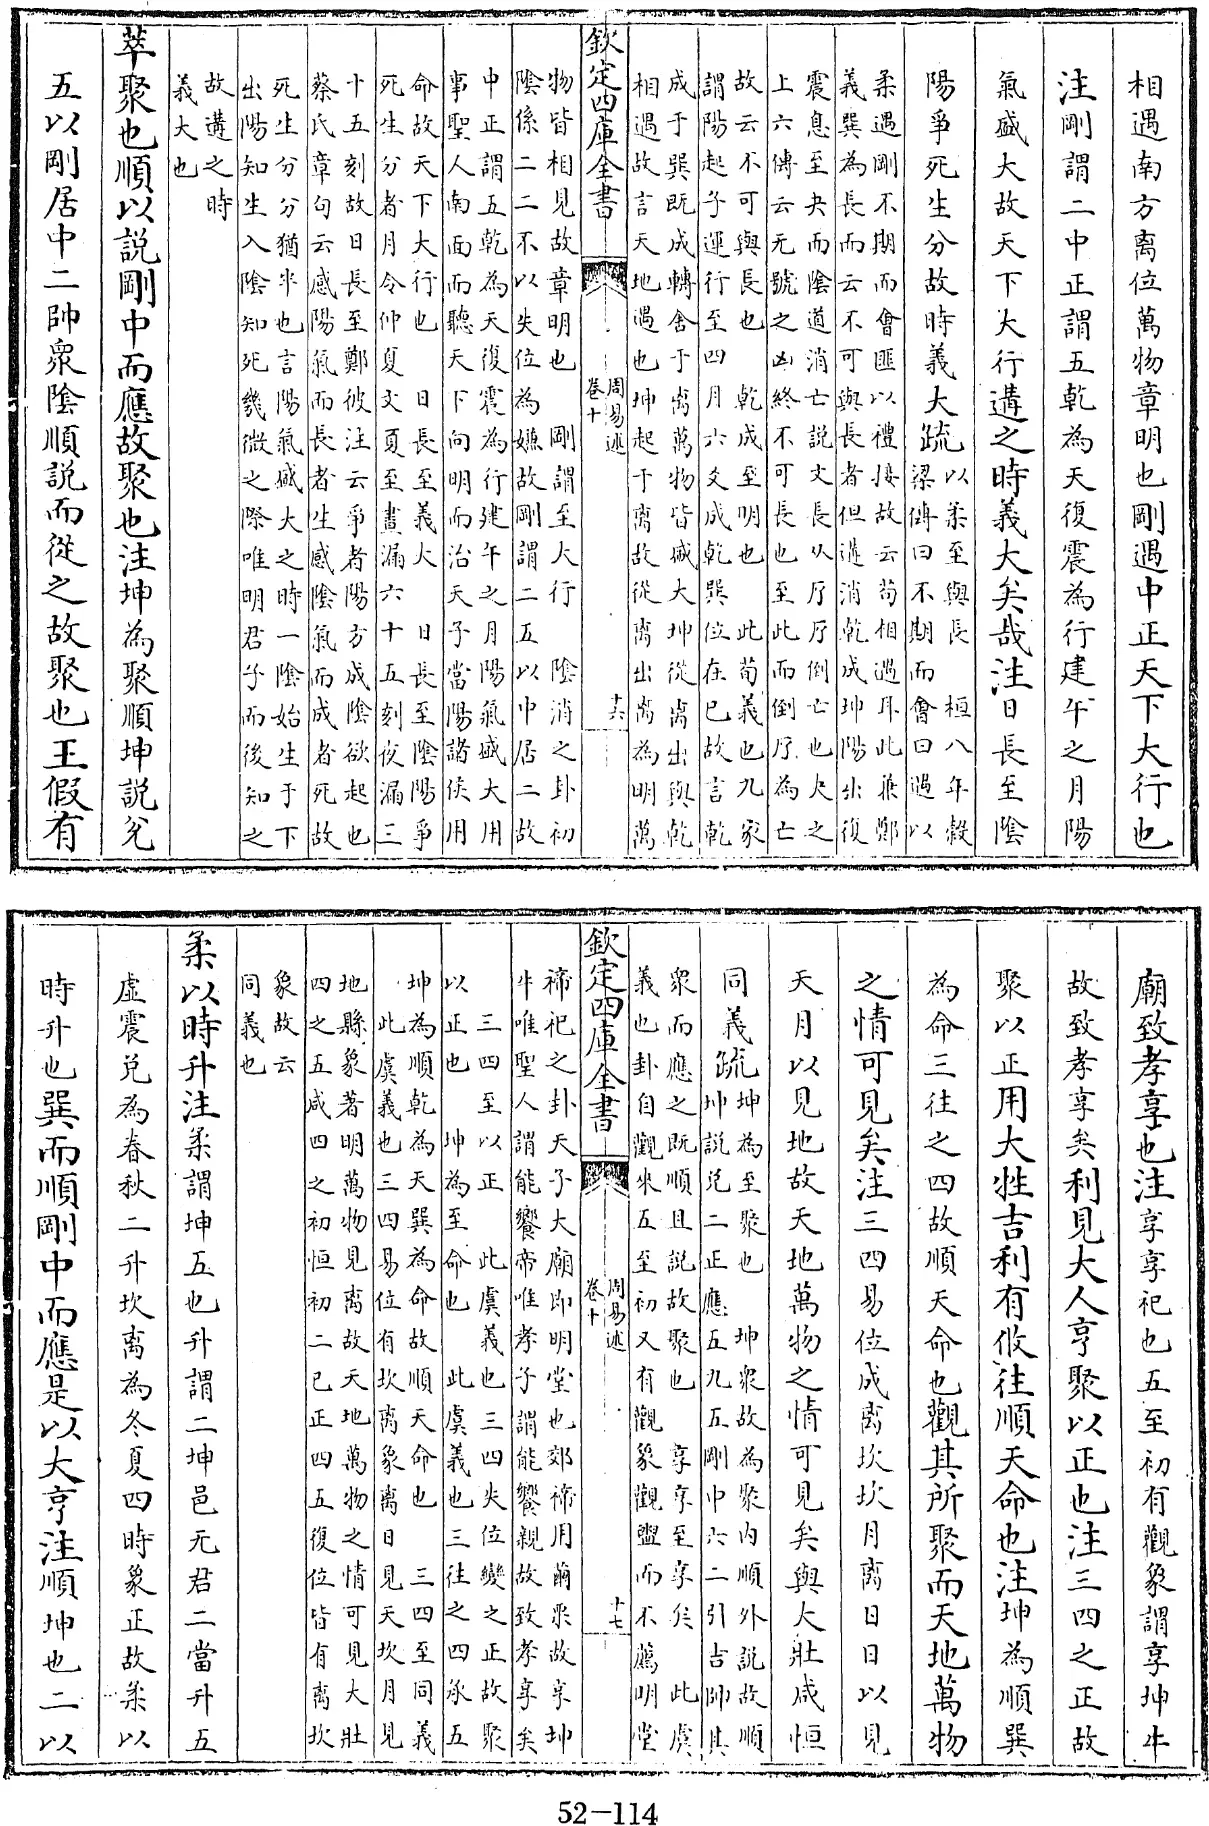 相遇南方离位萬物章明也剛遇中正天下大行也
注剛謂二中正謂五乾為天復震為行建午之月陽
氣盛大故天下大行遘之時義大矣哉注日長至陰
陽爭死生分故時義大疏以柔至與長 桓八年穀
梁傳曰不期而會曰遇以
柔遇剛不期而會匪以禮接故云苟相遇耳此兼鄭
義巽為長而云不可與長者但遘消乾成坤陽出復
震息至夬而陰道消亡説文長从𠤎𠤎倒亡也夬之
上六傳云无號之凶終不可長也至此而倒𠤎為亡
故云不可與長也 乾成至明也 此荀義也九家
謂陽起子運行至四月六爻成乾巽位在巳故言乾
成于巽既成轉舍于离萬物皆盛大坤從离出與乾
相遇故言天地遇也坤起于离故從离出离為明萬
欽定四庫全書
周易述
卷十
十六
物皆相見故章明也 剛謂至大行 陰消之卦初
陰係二二不以失位為嫌故剛謂二五以中居二故
中正謂五乾為天復震為行建午之月陽氣盛大用
事聖人南面而聽天下向明而治天子當陽諸侯用
命故天下大行也 日長至義大 日長至陰陽爭
死生分者月令仲夏文夏至晝漏六十五刻夜漏三
十五刻故日長至鄭彼注云爭者陽方成陰欲起也
蔡氏章句云感陽氣而長者生感陰氣而成者死故
死生分分猶半也言陽氣盛大之時一陰始生于下
出陽知生入陰知死幾微之際唯明君子而後知之
故遘之時
義大也
萃聚也順以説剛中而應故聚也注坤為聚順坤説兊
五以剛居中二帥衆陰順説而從之故聚也王假有
廟致孝享也注享享祀也五至初有觀象謂享坤牛
故致孝享矣利見大人亨聚以正也注三四之正故
聚以正用大牲吉利有攸往順天命也注坤為順巽
為命三往之四故順天命也觀其所聚而天地萬物
之情可見矣注三四易位成离坎坎月离日日以見
天月以見地故天地萬物之情可見矣與大壯咸恒
同義疏坤為至聚也 坤衆故為聚内順外説故順
坤説兊二正應五九五剛中六二引吉帥其
衆而應之既順且説故聚也 享享至享矣 此虞
義也卦自觀來五至初又有觀象觀盥而不薦明堂
欽定四庫全書
周易述
卷十
十七
禘祀之卦天子大廟即明堂也郊禘用繭栗故享坤
牛唯聖人謂能饗帝唯孝子謂能饗親故致孝享矣
三四至以正 此虞義也三四失位變之正故聚
以正也 坤為至命也 此虞義也三往之四承五
坤為順乾為天巽為命故順天命也 三四至同義
此虞義也三四易位有坎离象离日見天坎月見
地縣象著明萬物見离故天地萬物之情可見大壯
四之五咸四之初恒初二已正四五復位皆有离坎
象故云
同義也
柔以時升注柔謂坤五也升謂二坤邑无君二當升五
虛震兊為春秋二升坎离為冬夏四時象正故柔以
時升也巽而順剛中而應是以大亨注順坤也二以
52-114